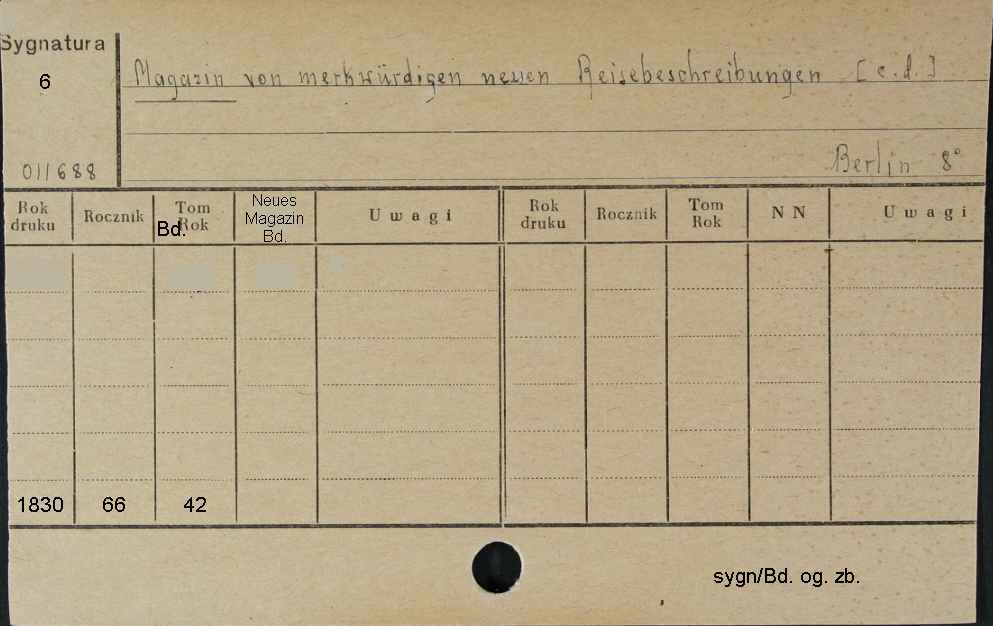 Sygnatura
6
Magazin von merkwürdigen neuen Reisebeschreibungen [c.d.]
011688
Berlin 8°
Rok druku Rocznik Bd. Tom Rok Neues Magazin Bd. Uwagi Rok druku Rocznik Tom Rok NN Uwagi
1830 66 42
sygn/Bd. og. zb.